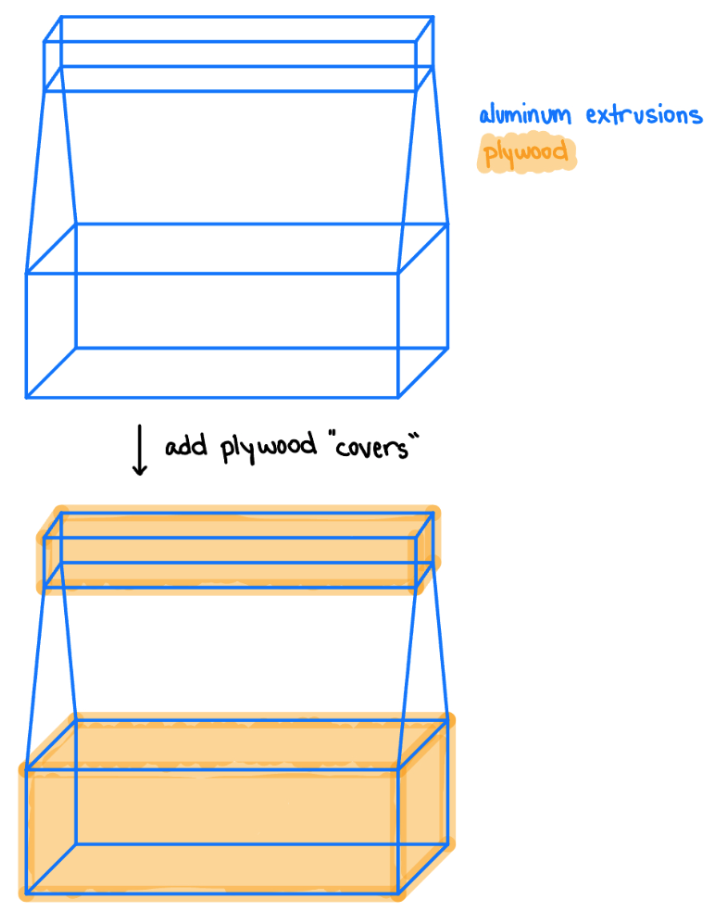 aluminum extrusions
plywood
add plywood "covers"